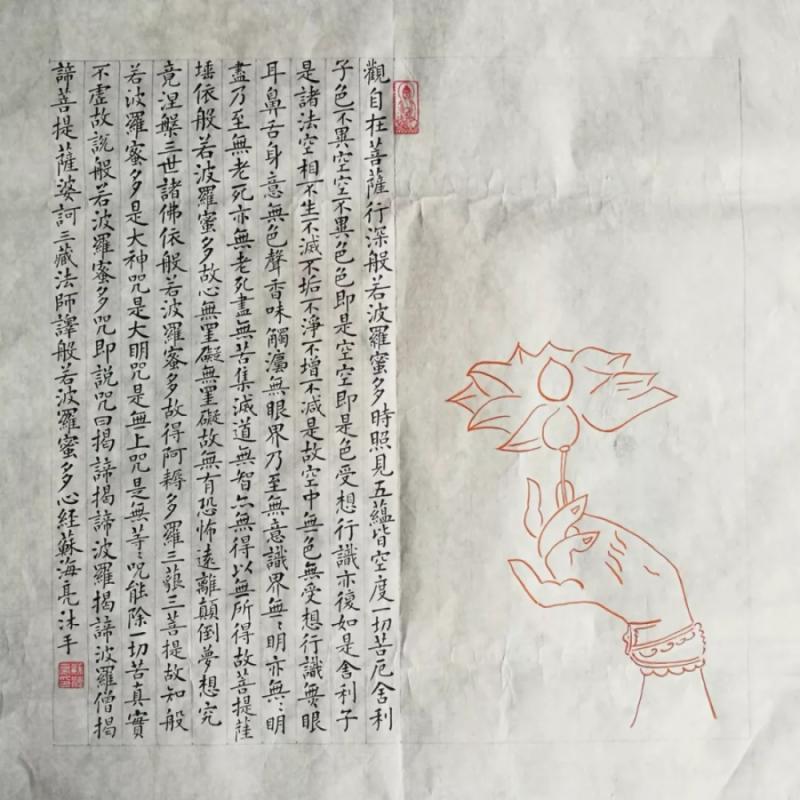 觀自在菩薩行深般若波羅蜜多時照見五蘊皆空度一切苦厄舍利
子色不異空空不異色色即是空空即是色受想行識亦復如是舍利子
是諸法空相不生不滅不垢不淨不增不減是故空中無色無受想行識無眼
耳鼻舌身意無色聲香味觸灋無眼界乃至無意識界無〻明亦無〻明
盡乃至無老死亦無老死盡無苦集滅道無智亦無得以無所得故菩提薩
埵依般若波羅蜜多故心無罣礙無罣礙故無有恐怖遠離顛倒夢想究
竟涅槃三世諸佛依般若波羅蜜多故得阿耨多羅三藐三菩提故知般
若波羅蜜多是大神咒是大明咒是無上咒是無等〻咒能除一切苦真實
不虛故說般若波羅蜜多咒即說咒曰揭諦揭諦波羅揭諦波羅僧揭
諦菩提薩婆訶三藏法師譯般若波羅蜜多心経蘇海亮沐手